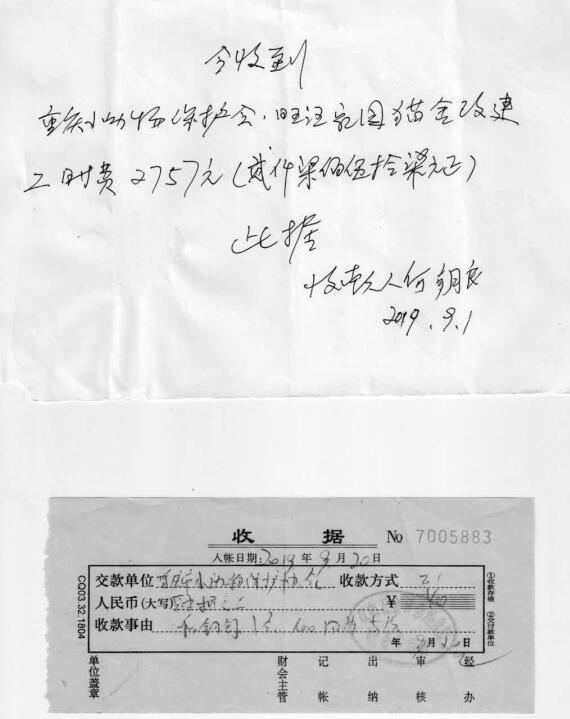 今收到
重庆小动物保护会.旺汪家园猫舍改建
工时费2757元(贰仟柒佰伍拾柒元正)
此据
收款人何
2019.9.1
收 据 No 7005883
入帐日期:2019年9月20日
交款单位 重庆小动物保护协会 收款方式
人民币(大写) ¥
收款事由
年 月 日
CQ03.32.1804
①收款存根
②交付款单位
单位盖章 财会主管 记帐 出纳 审核 经办